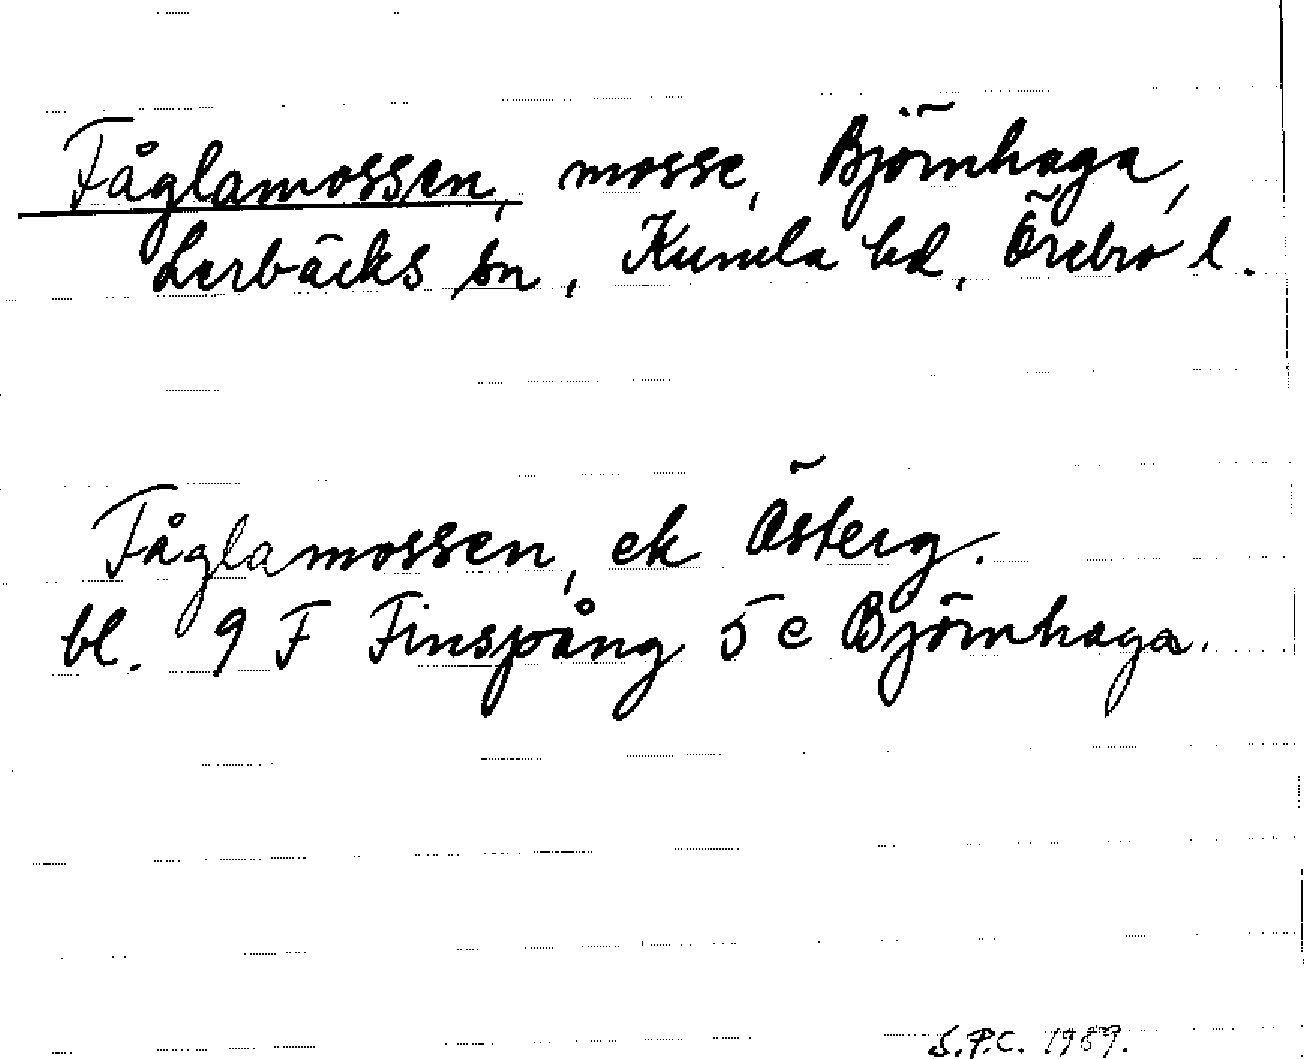 Fåglamossen, mosse, Björnhaga,
Lerbäcks sn, Kumla hd, Örebro l.
Fåglamossen, ek Österg.
bl. 9 F Finspång 5 c Björnhaga.
S.P.C. 1989.